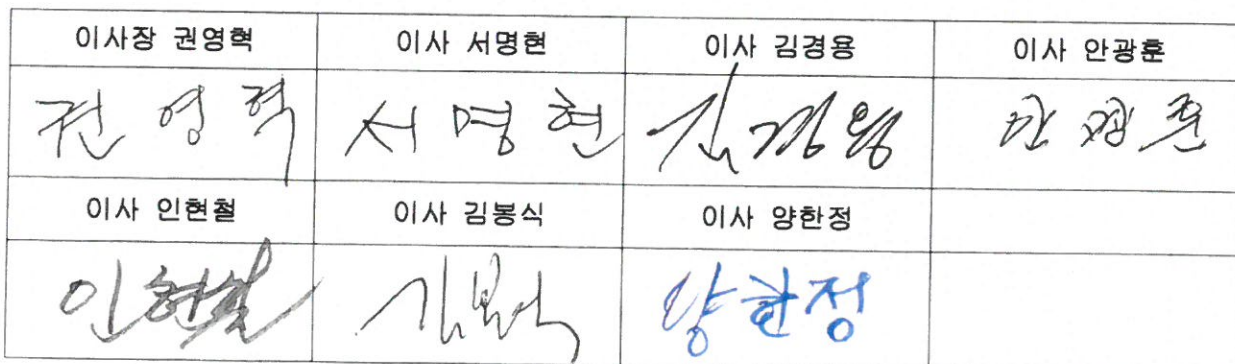 이사장 권영혁 이사 서명현 이사 김경용 이사 안광훈
권 영 혁 서 명 현 김경용 안 광 훈
이사 인현철 이사 김봉식 이사 양한정
인현철 김봉식 양한정